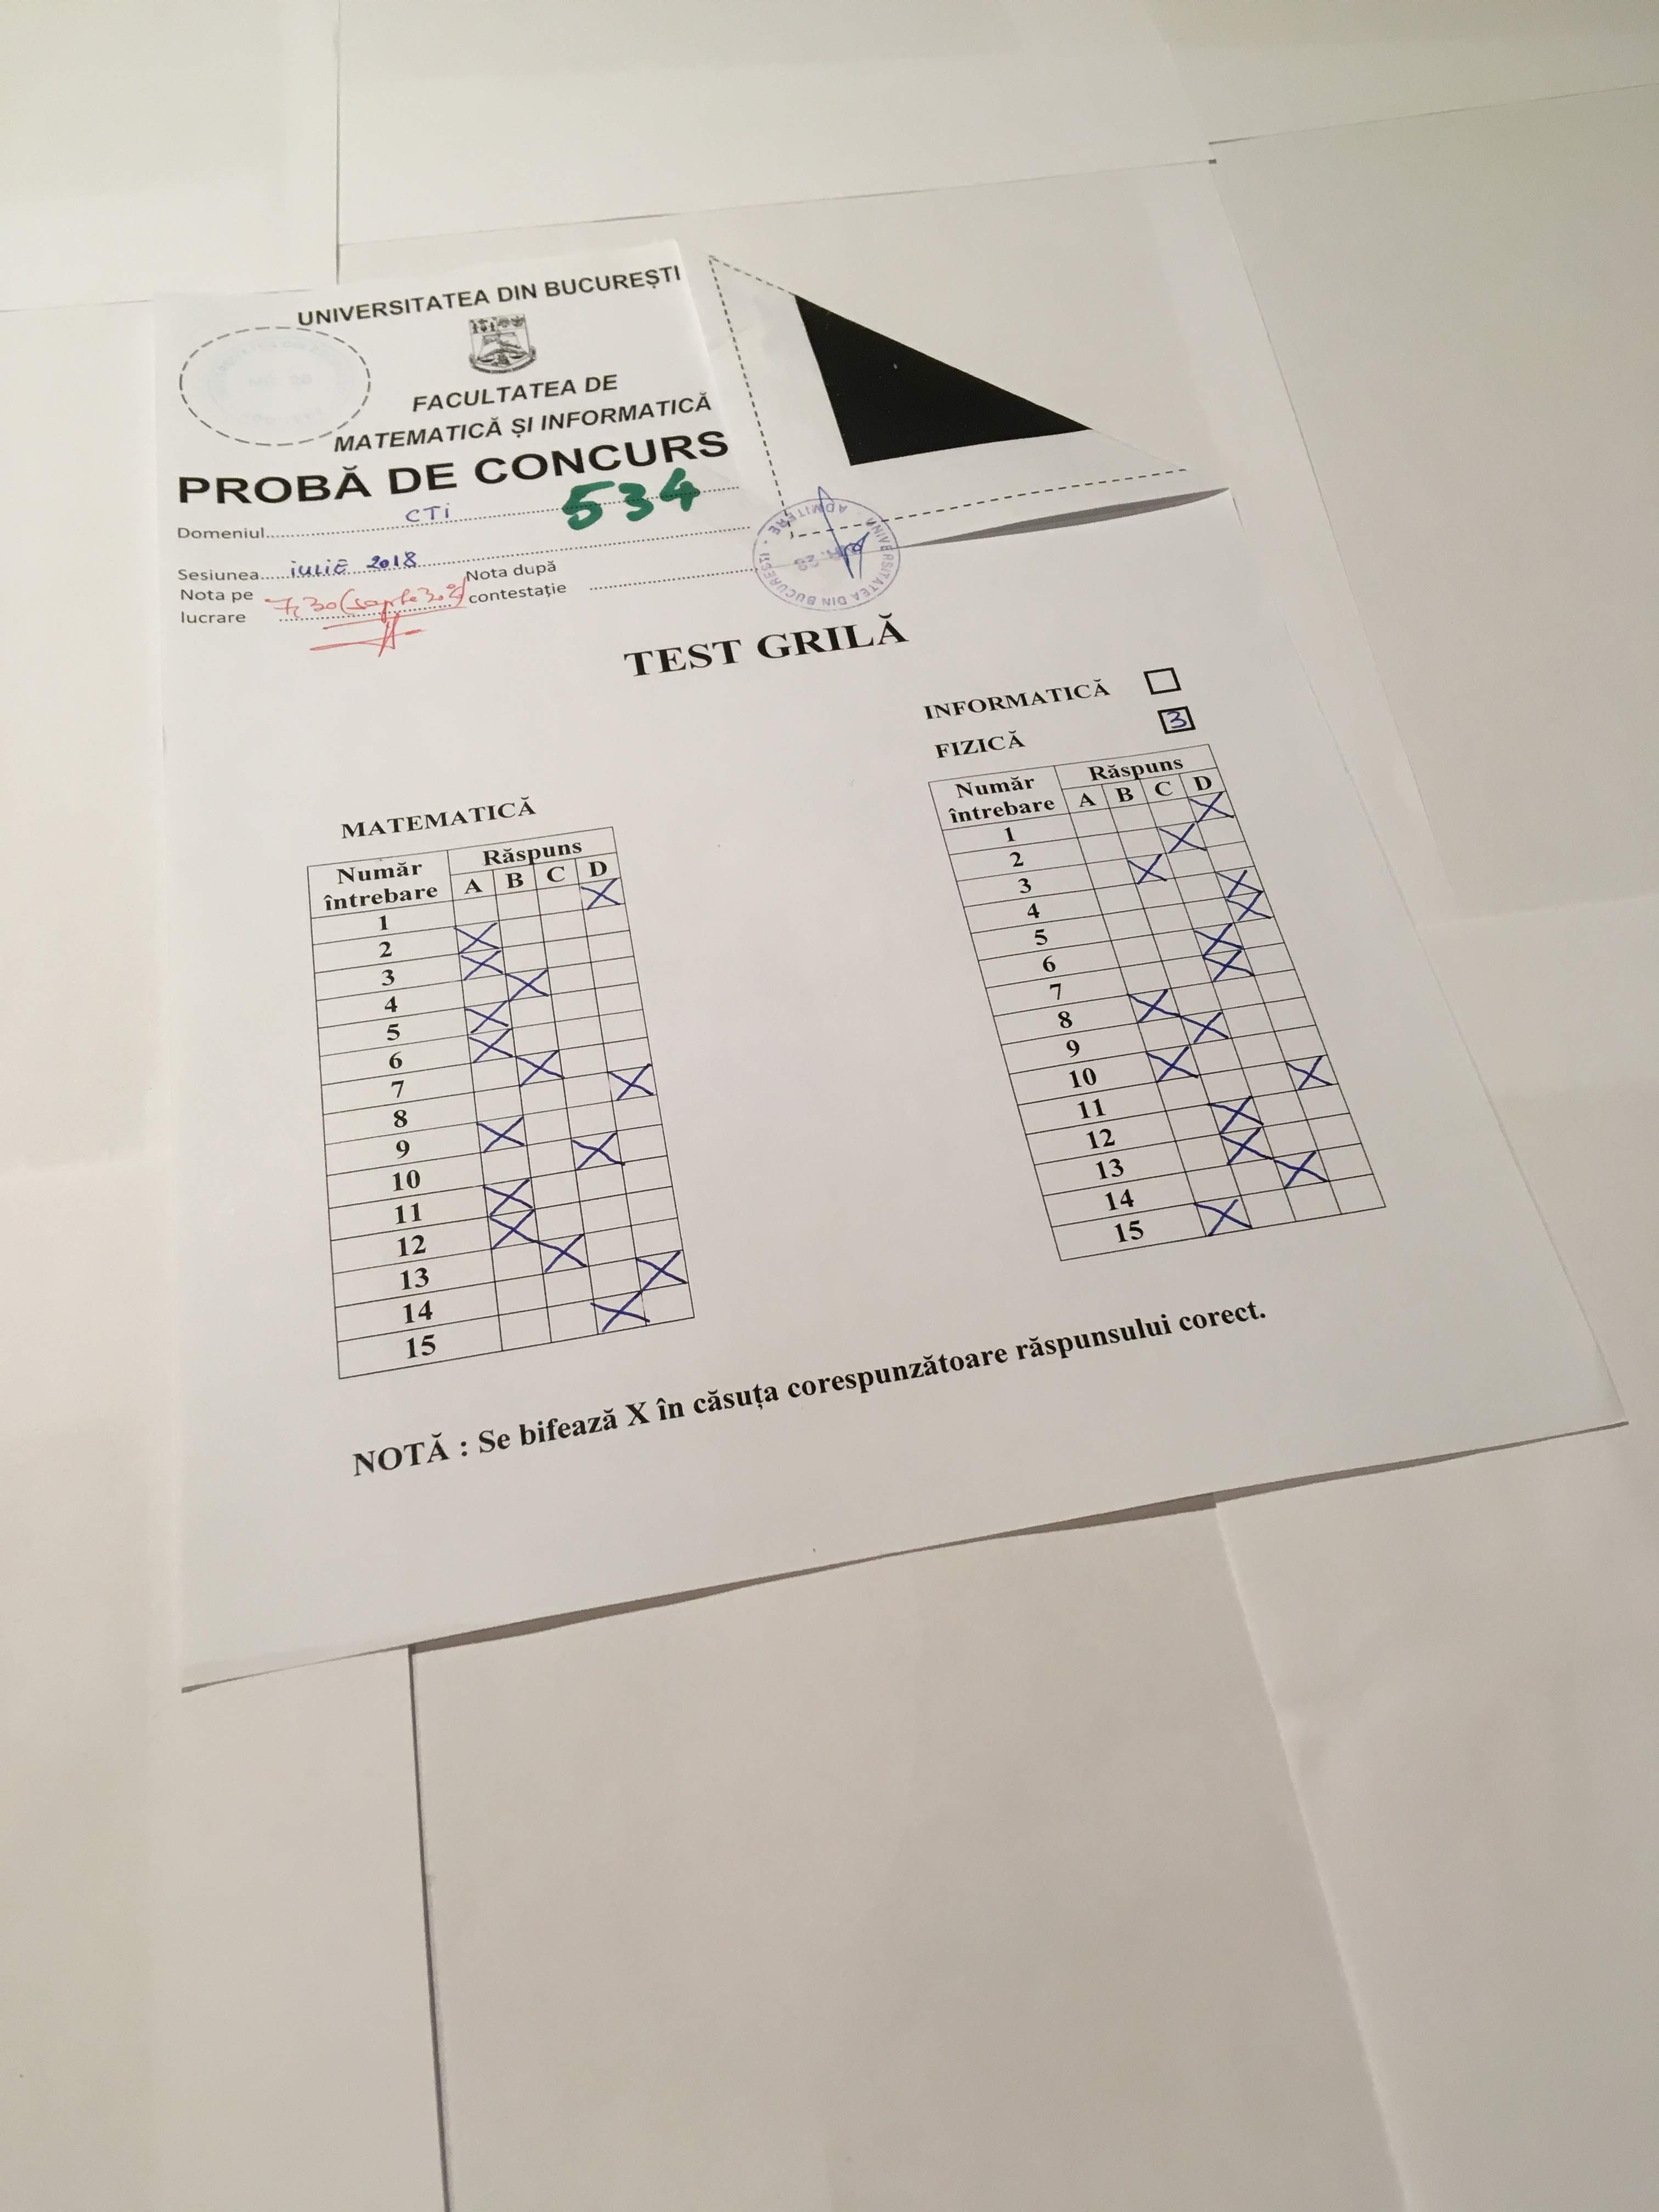 UNIVERSITATEA DIN BUCUREȘTI
FACULTATEA DE
MATEMATICĂ ȘI INFORMATICĂ
PROBĂ DE CONCURS
534
Domeniul CTi
Sesiunea iulie 2018
Nota pe lucrare 7,30 (șapte 30%)
Nota după contestație
UNIVERSITATEA DIN BUCUREȘTI - ADMITERE -
TEST GRILĂ
INFORMATICĂ
FIZICĂ 3
MATEMATICĂ
Număr întrebare Răspuns
A B C D
1 X
2 X
3 X
4 X
5 X
6 X
7 X
8 X
9 X
10 X
11 X
12 X
13 X
14 X
15 X
Număr întrebare Răspuns
A B C D
1 X
2 X
3 X
4 X
5 X
6 X
7 X
8 X
9 X
10 X
11 X
12 X
13 X
14 X
15 X
NOTĂ : Se bifează X în căsuța corespunzătoare răspunsului corect.